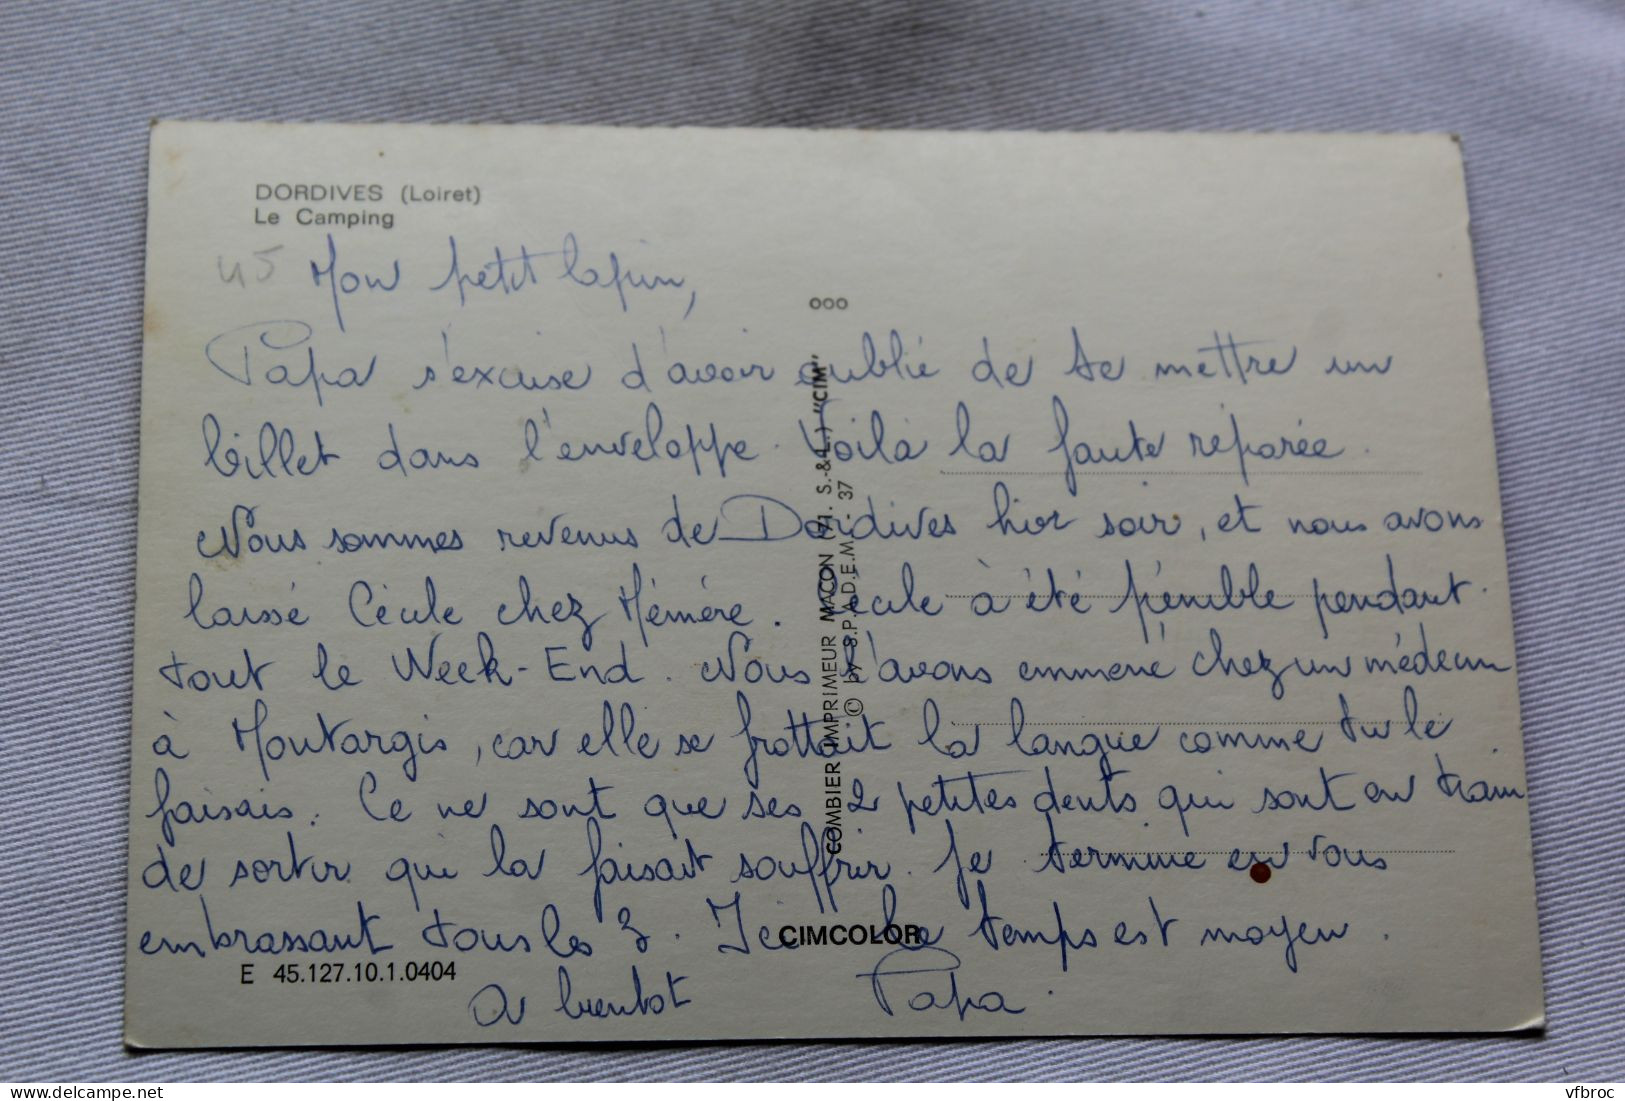 DORDIVES (Loiret)
Le Camping
45 Mon petit lapin,
Papa s'excuse d'avoir oublié de te mettre un
billet dans l'enveloppe. Voilà la faute réparée.
Nous sommes revenus de Dordives hier soir, et nous avons
laissé Cécile chez Mémère. Cécile à été pénible pendant
tout le Week-End. Nous l'avons emmené chez un médecin
à Montargis, car elle se frottait la langue comme tu le
faisais. Ce ne sont que ses 2 petites dents qui sont en train
de sortir qui la faisait souffrir. Je termine en vous
embrassant tous les 3. Ici le temps est moyen.
A bientot Papa.
ooo
COMBIER IMPRIMEUR MACON (71. S.-&-L.) "CIM"
© by S.P.A.D.E.M. - 37
CIMCOLOR
E 45.127.10.1.0404
delcampe.net
vfbroc